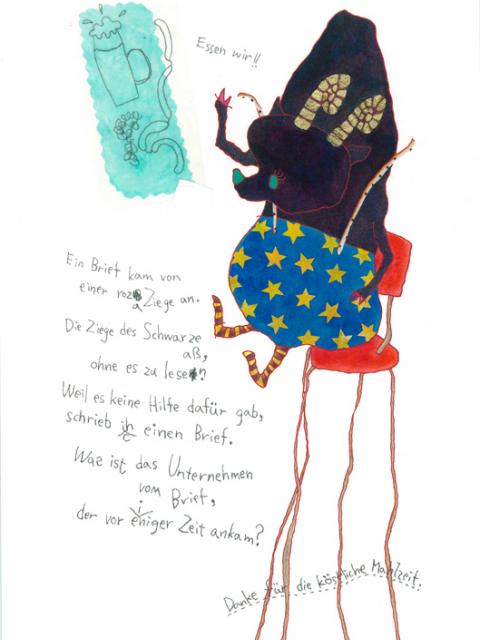 Essen wir!!
Ein Brief kam von
einer roza Ziege an.
Die Ziege des Schwarze
aß,
ohne es zu lesen?
Weil es keine Hilfe dafür gab,
schrieb ich einen Brief.
Waz ist das Unternehmen
vom Brief,
der vor einiger Zeit ankam?
Danke für die köstliche Mahlzeit.